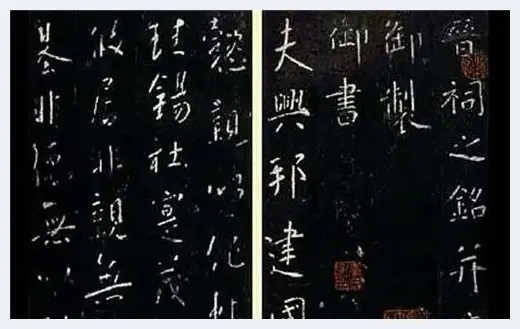 晉祠之銘并
御製
御書
夫興邦建國
懿親以作
珪錫社寔茂
攸居非親無
基非德無以